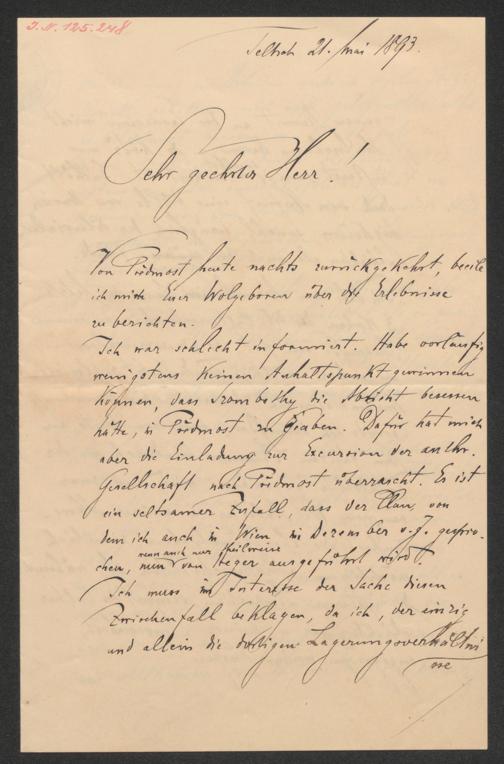 J. N. 125.248
Teltsch 21. Mai 1893.
Sehr geehrter Herr!
Von Předmost heute nachts zurückgekehrt, beeile
ich mich Euer Wolgeboren über die Erlebnisse
zu berichten.
Ich war schlecht informiert. Habe vorläufig
wenigstens keinen Anhaltspunkt gewinnen
können, dass Szombathy die Absicht besessen
hätte, in Předmost zu graben. Dafür hat mich
aber die Einladung zur Excursion der anthr.
Gesellschaft nach Předmost überrascht. Es ist
ein seltsamer Zufall, dass der Plan, von
dem ich auch in Wien im Dezember v. J. gespro-
chen, nun von
wenn auch nur theilweise
ausgeführt wird.
Ich muss im Interesse der Sache diesen
Zwischenfall beklagen, da ich, der einzig
und allein die dortigen Lagerungsverhältni
sse